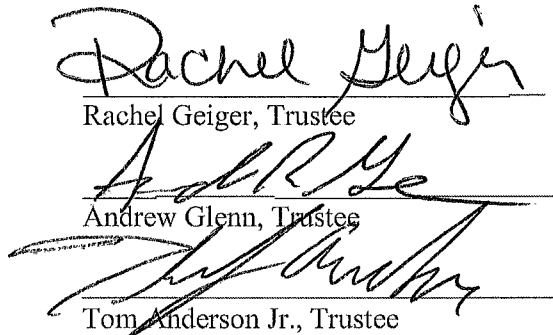 Rachel Geiger
Rachel Geiger, Trustee
Andrew Glenn, Trustee
Tom Anderson Jr., Trustee